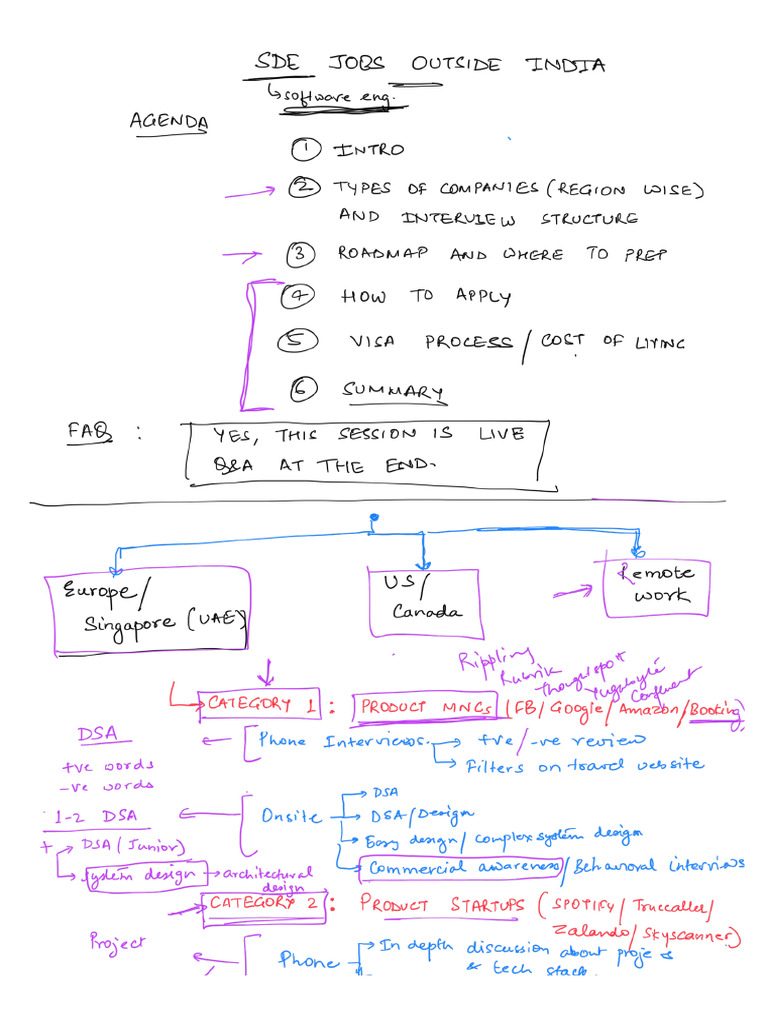 SDE JOBS OUTSIDE INDIA
software eng.
AGENDA
① INTRO
② TYPES OF COMPANIES (REGION WISE)
AND INTERVIEW STRUCTURE
③ ROADMAP AND WHERE TO PREP
④ HOW TO APPLY
⑤ VISA PROCESS / COST OF LIVING
⑥ SUMMARY
FAQ :
YES, THIS SESSION IS LIVE
Q&A AT THE END.
Europe/
Singapore (UAE)
US/
Canada
Remote
work
Rippling
Rubrik
Thoughtspot
Yugabyte
Confluent
CATEGORY 1 : PRODUCT MNCs (FB/ Google/ Amazon/ Booking)
DSA
Phone Interviews. +ve/-ve review
Filters on travel website
+ve words
-ve words
1-2 DSA
Onsite
DSA
DSA/Design
Easy design/ complex system design
Commercial awareness/ Behavioral interviews
+ DSA (Junior)
System design architectural
design
CATEGORY 2 : PRODUCT STARTUPS (SPOTIFY/ Truecaller/
Zalando/ Skyscanner)
Project
Phone
In depth discussion about proje s
& tech stack.